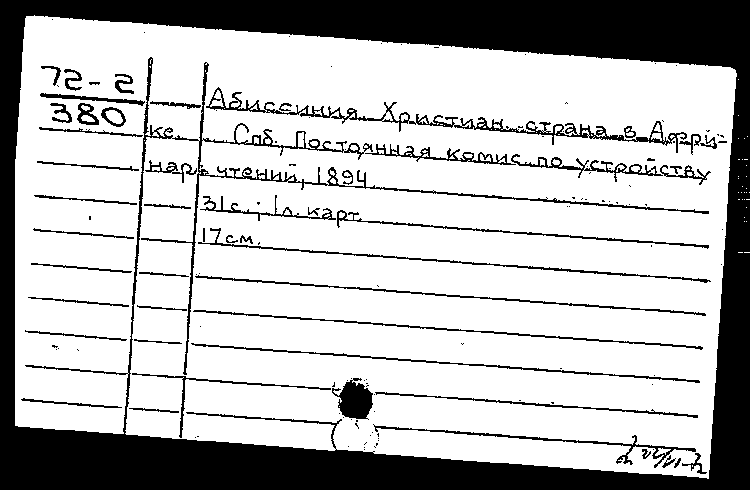 72-2
380
Абиссиния. Христиан. страна в Афри-
ке. Спб., Постоянная комис. по устройству
нар. чтений, 1894.
31 с.; 1 л. карт.
17 см.